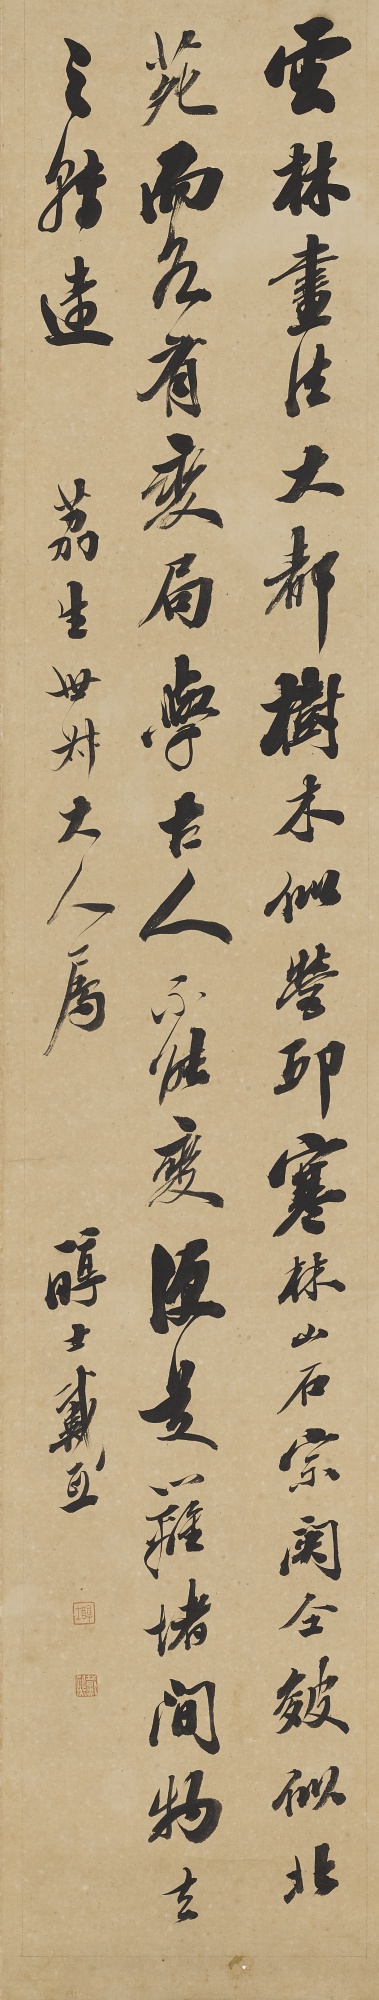 雲林畫法大都樹木似營邱寒林山石宗関仝皴似北
苑而各有變局學古人不能變便是籬堵間物去
之轉遠
荔生世叔大人属
醇士戴熙